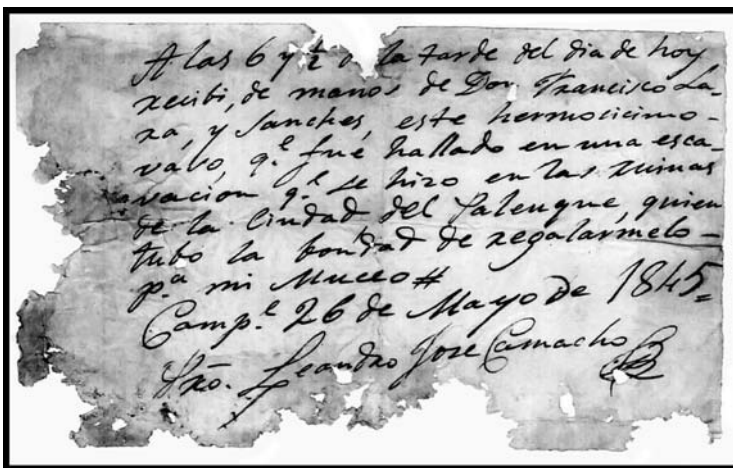 A las 6 y ½ d la tarde del dia de hoy
recibi, de manos de Don Francisco La-
ra, y Sanches, este hermocicimo-
vaso, q.e fué hallado en una esca-
vacion q.e se hizo en las ruinas
de la Ciudad del Palenque, quien
tubo la bondad de regalarmelo-
p.a mi Museo #
Camp.e 26 de Mayo de 1845=
Pro. Leandro Jose Camacho